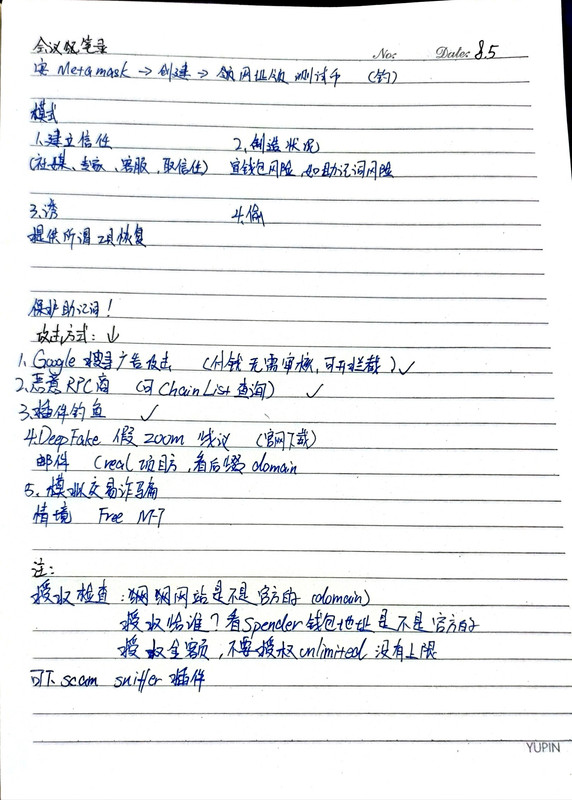 会议纪笔录
No:
Date: 8.5
安 Metamask → 创建 → 领网址领测试币 (钓)
模式
1.建立信任 2.制造状况
(社媒、专家、客服,取信任) 宣钱包风险,如助记词风险
3.诱 4.偷
提供所谓工具恢复
保护助记词!
攻击方式:↓
1. Google 搜寻广告攻击 (付钱无需审核,可开拦截) ✓
2.恶意RPC商 (可ChainList查询) ✓
3.插件钓鱼 ✓
4.DeepFake 假 zoom 线议 (官网下载)
邮件 (real项目方,看后缀 domain
5. 模拟交易诈骗
情境 Free
注:
授权检查: 网站是不是官方的 (domain)
授权给谁?看Spender钱包地址是不是官方的
授权金额,不要授权unlimited 没有上限
可下 scam sniffer 插件
YUPIN